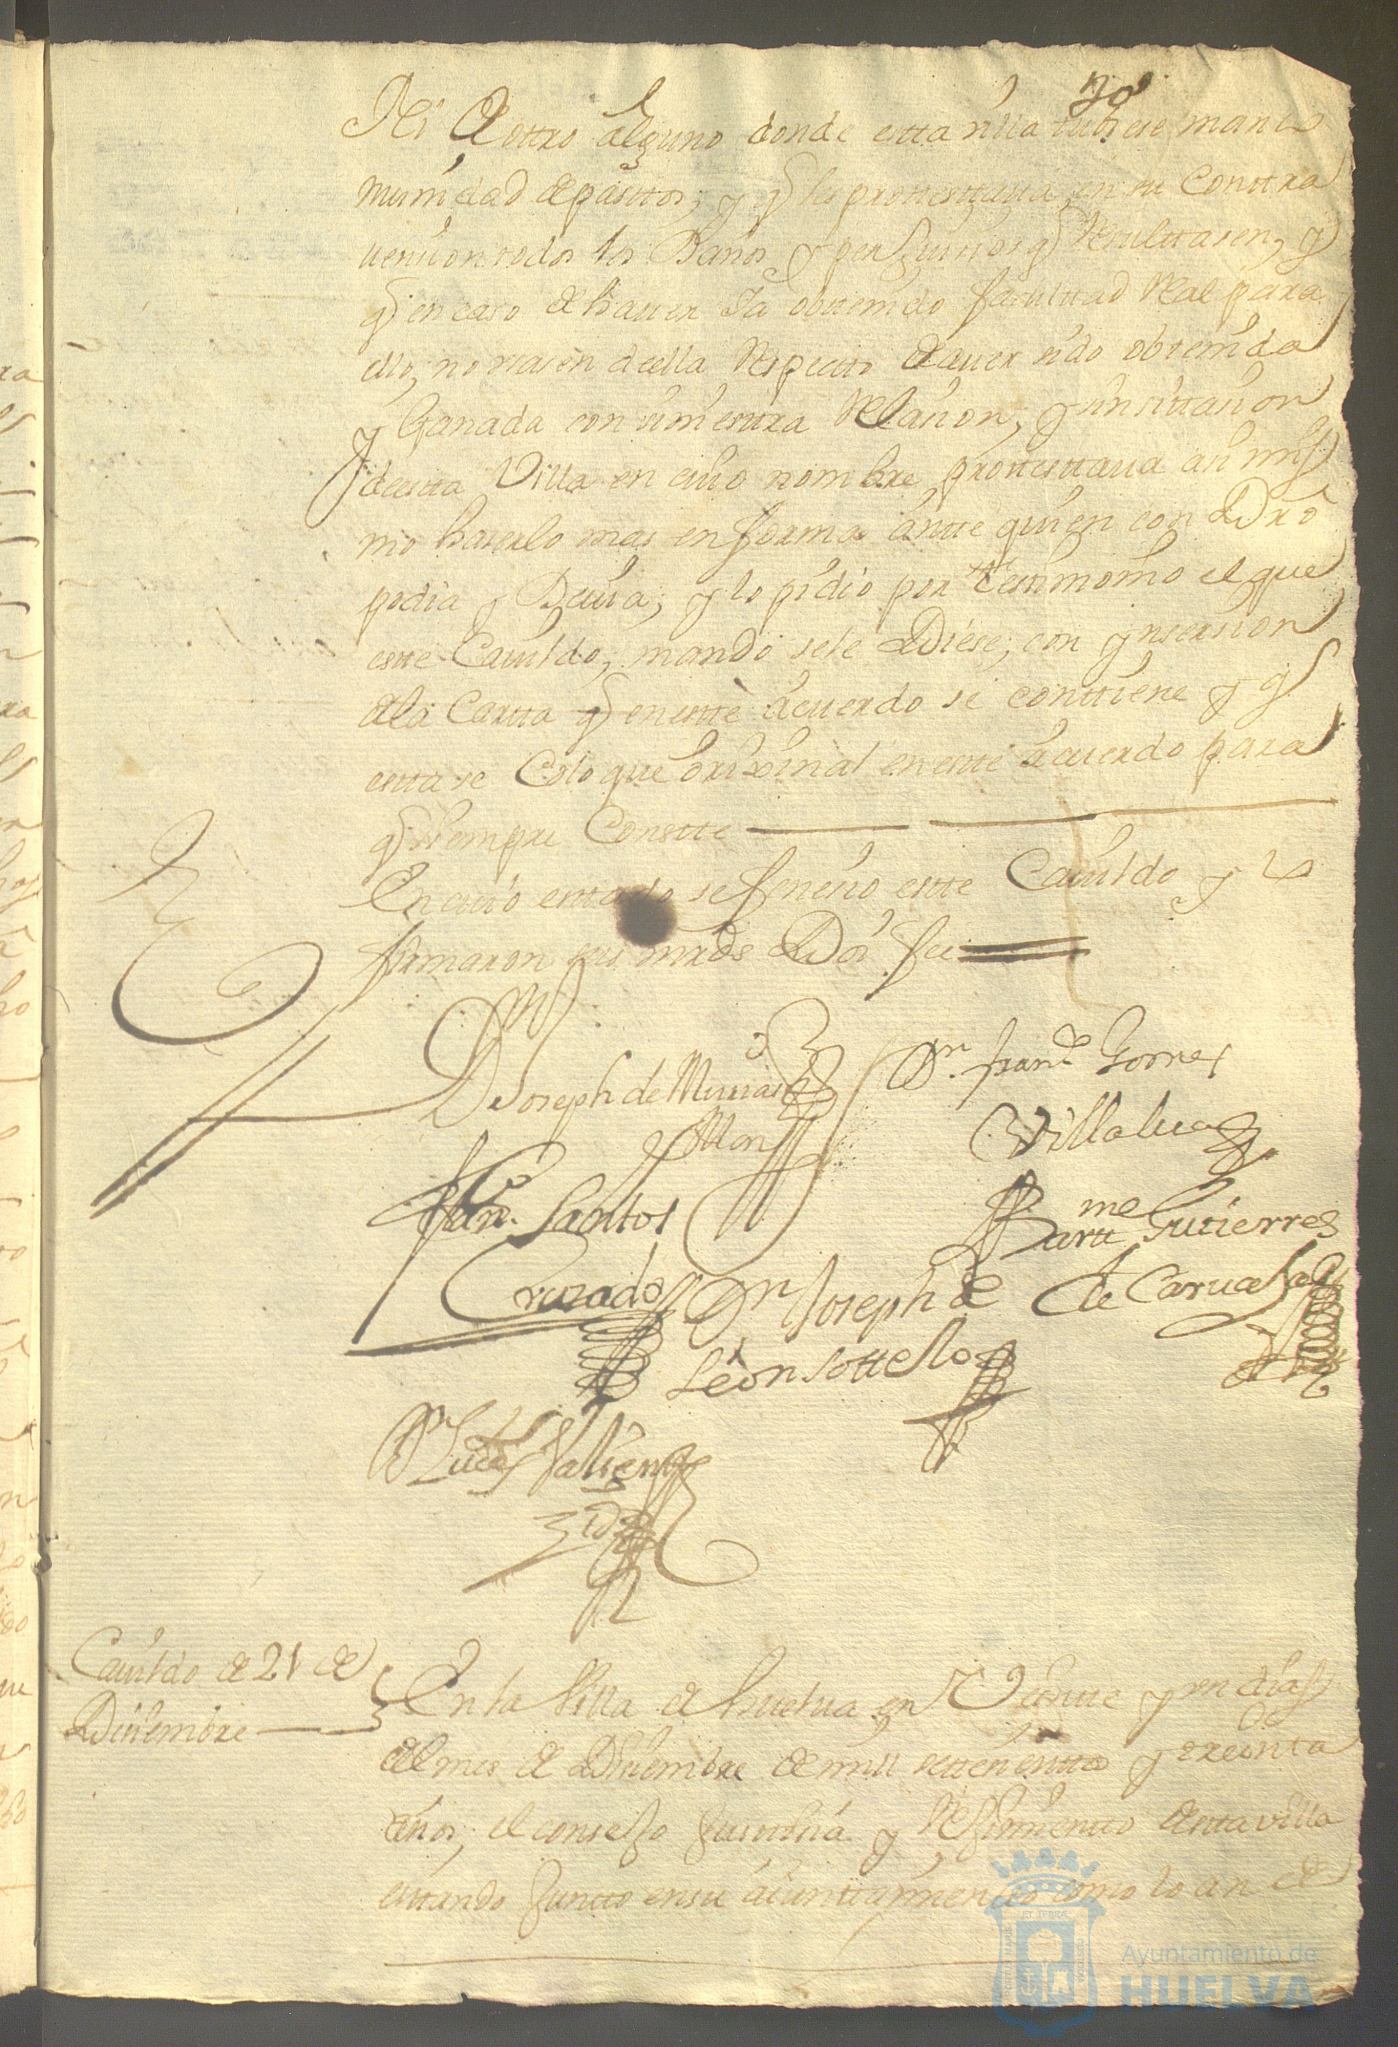 70
Ni de ottro alguno donde estta villa tubiese man
munidad de pasttos, y q les prottesttaua en su conttra
uenzion todos los Daños y perjuizios q Resulttasen, y
q en caso de hauer Ya obttenido faculttad Real para
ello, no vsasen de ella Respectto de auer sido obtenida
y Ganada con siniesttra Relazion, y sin zittazion
de estta Villa en cuio nombre prottesttaua asimis
mo haserlo mas en forma antte quien con Dro
podia y Deuia, y lo pidio por testimonio el que
este Cauildo, mando se le Diese, con ynsersion
de la Cartta q en estte acuerdo se conttiene y q
estta se Coloque orixinal en estte acuerdo para
q siempre Constte
En cuio estado se fenezio estte Cauildo y lo
firmaron sus mrds Doi fee
D Joseph de
Dn. Franco Gomez
Villalua
Fran. Santos
Cruzado
Bartme Gutierres
de Caruajal
Dn Joseph de
León Sottello
Lucas Valiente
Cauildo de 21 de
Diziembre
En la Villa de Huelua en Veinte y un dias
del mes de Diziembre de mill settezienttos y treinta
años, el consejo Justtizia y Reximientto de estta villa
esttando Juntto en su aiunttamientto como lo an de
Ayuntamiento de
HUELVA